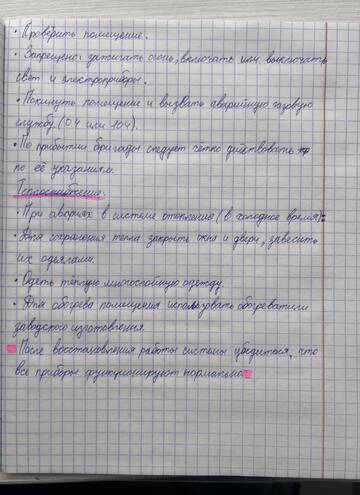 • Проверить помещение.
• Запрещено: зажигать огонь, включать или выключать
свет и электроприборы.
• Покинуть помещение и вызвать аварийную газовую
службу (04 или 104).
• По прибытии бригады следует чётко действовать
по её указанию.
Теплоснабжение:
• При авариях в системе отопление (в холодное время):
• Для сохранения тепла закрыть окна и двери, завесить
их одеялами.
• Одеть тёплую многослойную одежду.
• Для обогрева помещения использовать обогреватели
заводского изготовления.
После восстановления работы системы убедиться, что
все приборы функционируют нормально.